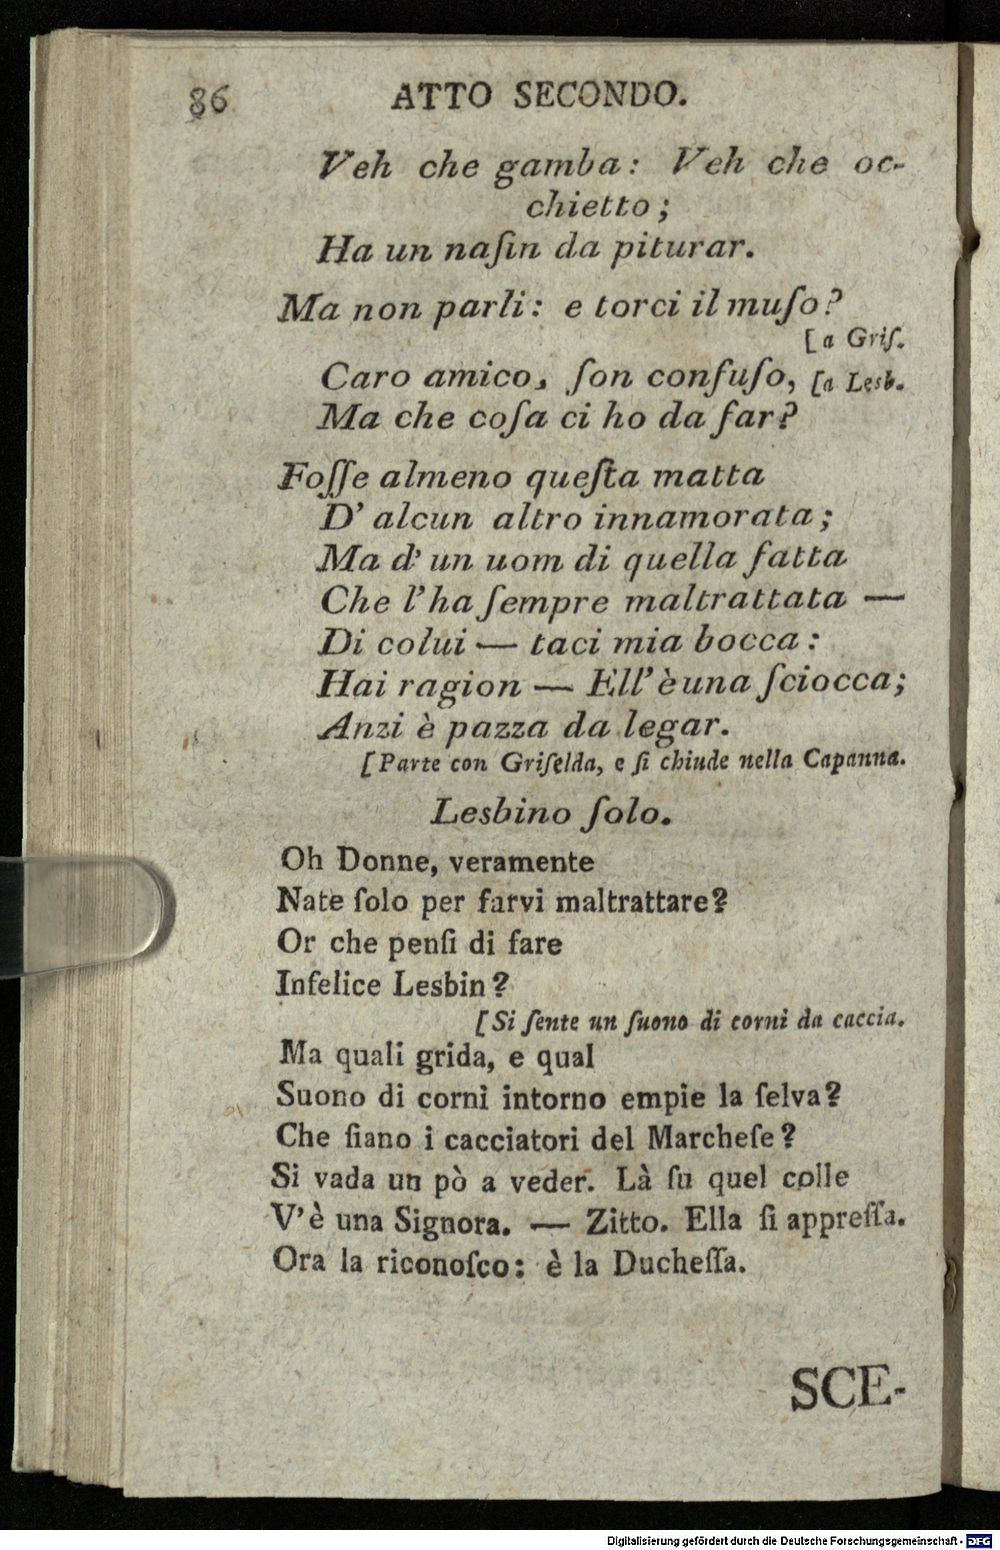 86 ATTO SECONDO.
Veh che gamba: Veh che oc-
chietto;
Ha un naſin da piturar.
Ma non parli: e torci il muſo?
[a Griſ.
Caro amico, ſon confuſo, [a Lesb.
Ma che coſa ci ho da far?
Foſſe almeno queſta matta
D' alcun altro innamorata;
Ma d' un uom di quella fatta
Che l' ha ſempre maltrattata —
Di colui — taci mia bocca:
Hai ragion — Ell' è una ſciocca;
Anzi è pazza da legar.
[Parte con Griſelda, e ſi chiude nella Capanna.
Lesbino ſolo.
Oh Donne, veramente
Nate ſolo per farvi maltrattare?
Or che penſi di fare
Infelice Lesbin?
[Si ſente un ſuono di corni da caccia.
Ma quali grida, e qual
Suono di corni intorno empie la ſelva?
Che ſiano i cacciatori del Marcheſe?
Si vada un pò a veder. Là ſu quel colle
V' è una Signora. — Zitto. Ella ſi appreſſa.
Ora la riconoſco: è la Ducheſſa.
SCE-
Digitalisierung gefördert durch die Deutsche Forschungsgemeinschaft - DFG